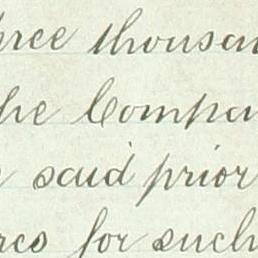 hree thousan
he Compa
said prior
res for such